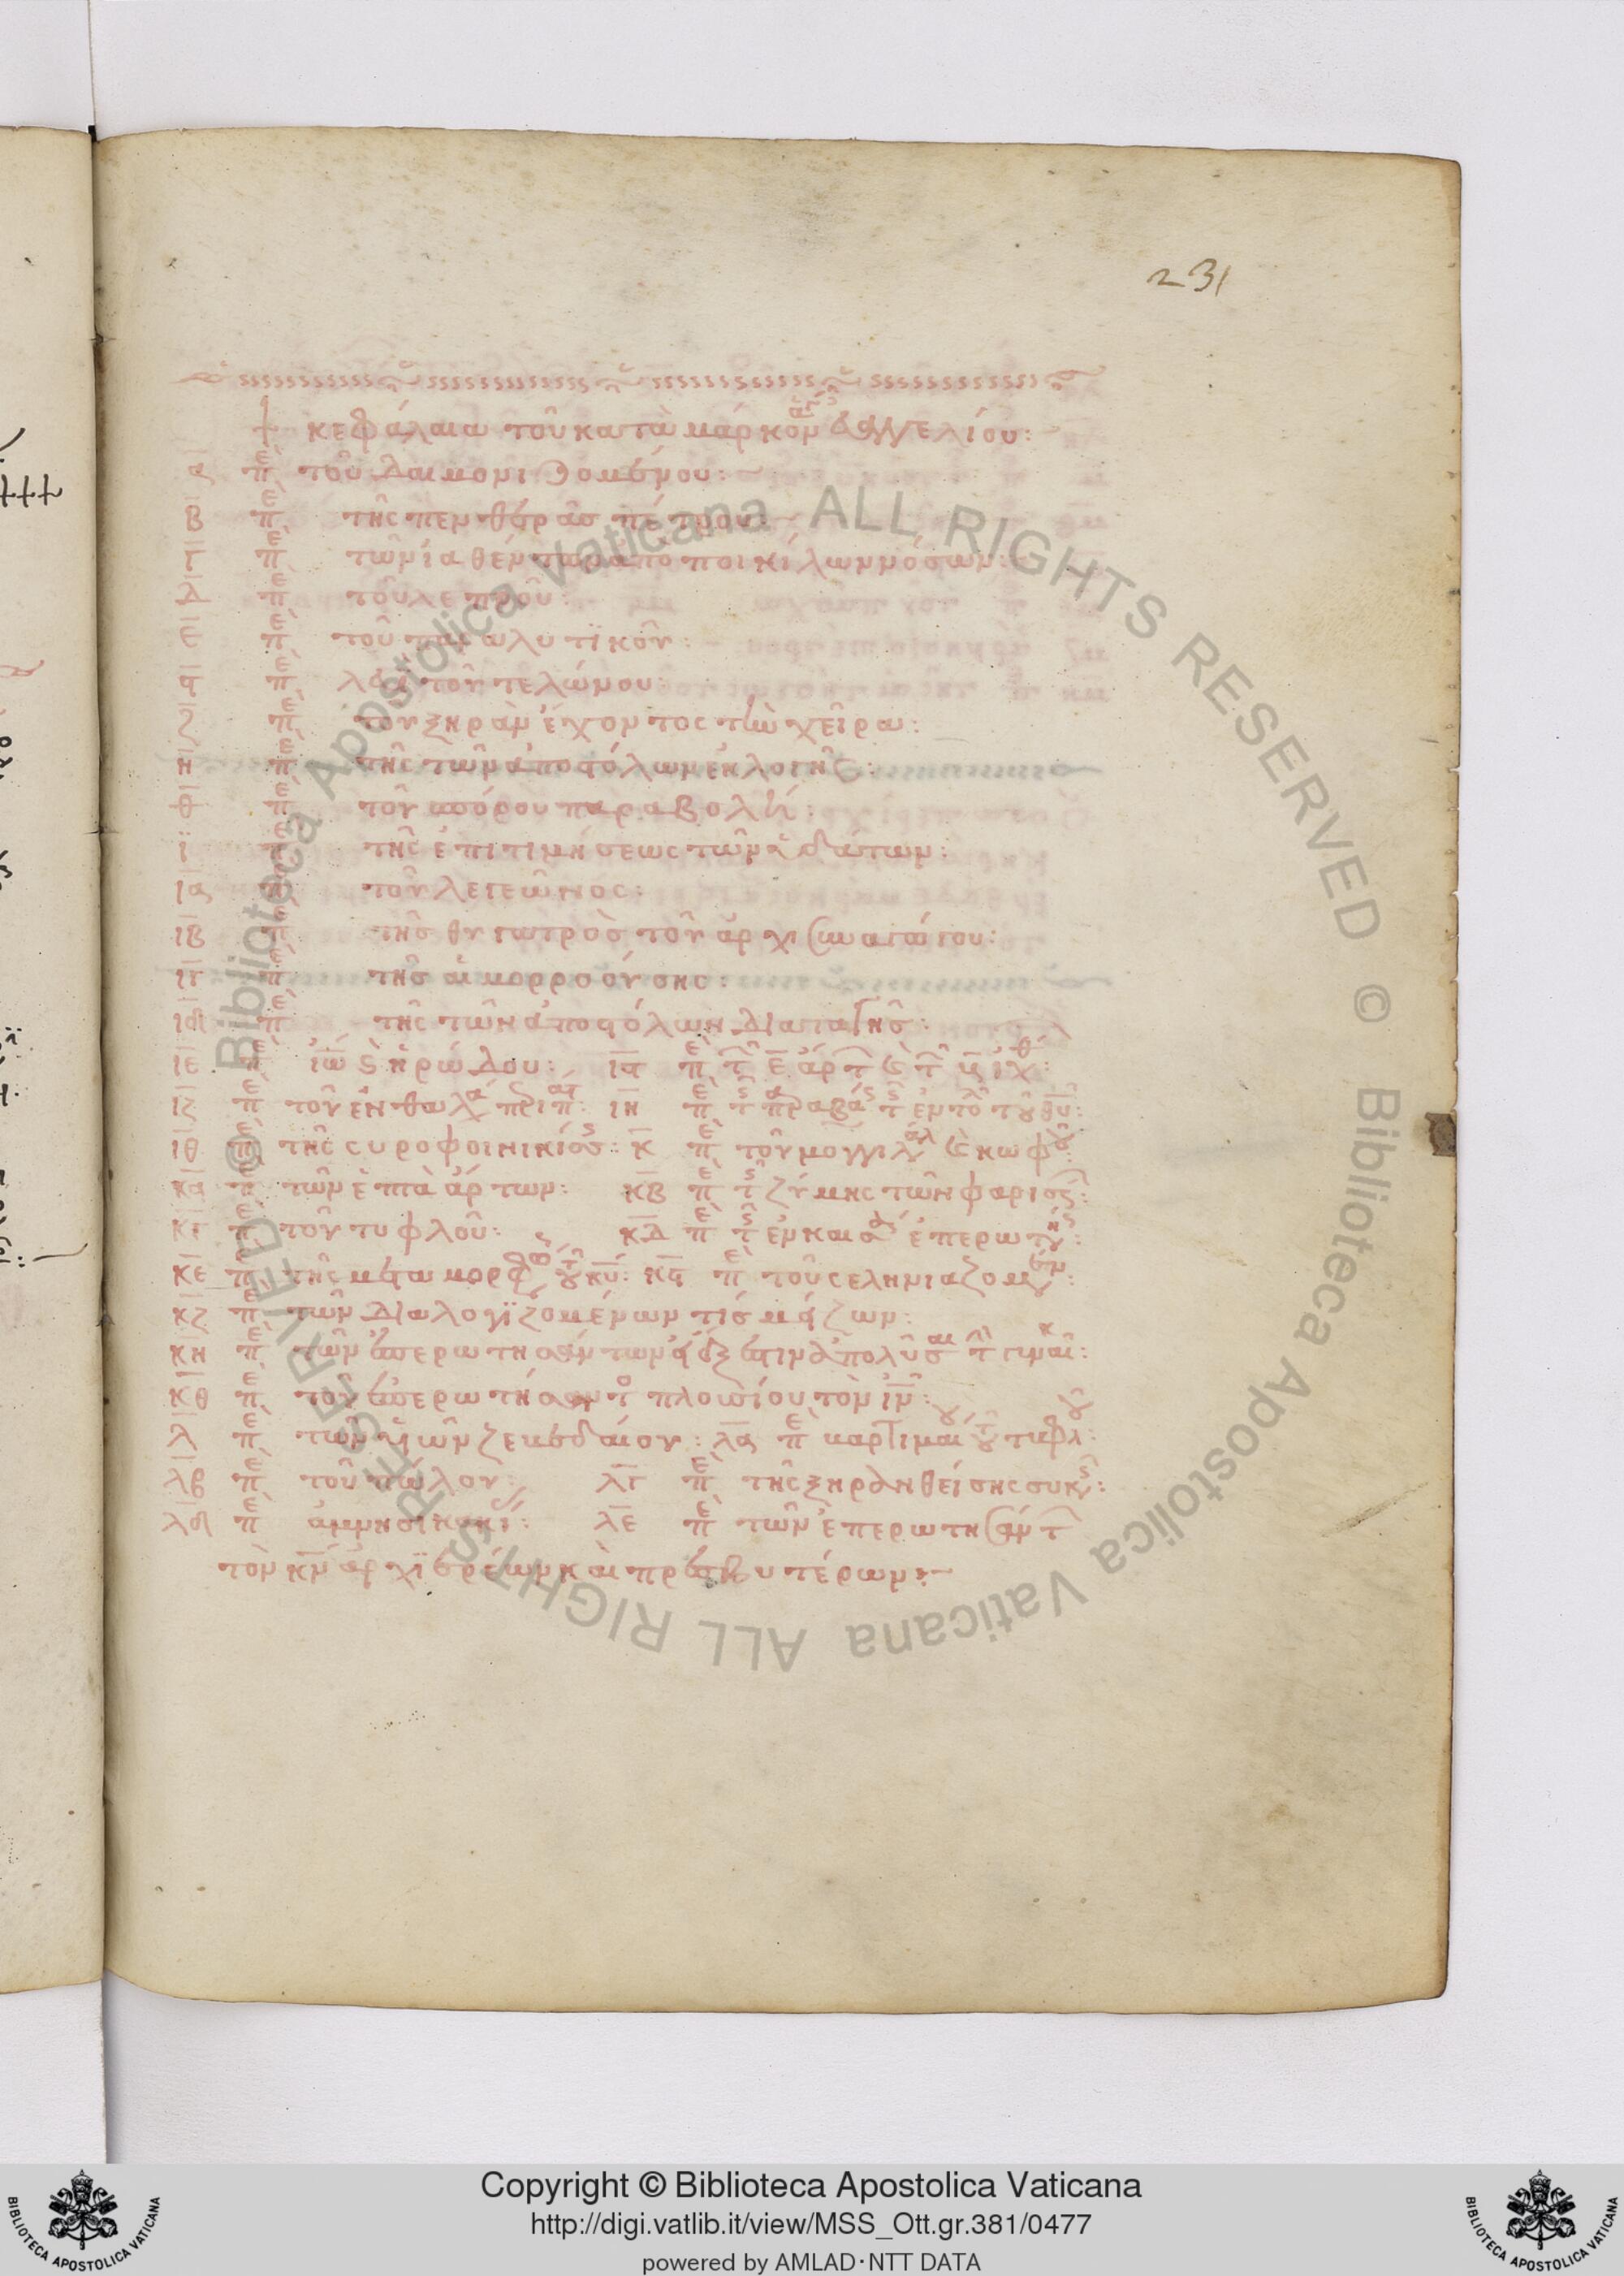 231
κεφάλαια τοῦ κατὰ μάρκον ἁγ εὐαγγελίου:
α πε τοῦ δαιμονιζομένου:
β πε τῆς πενθερᾶσ πέτρου:
γ πε τῶν ἰαθέντων ἀπὸ ποικίλων νόσων:
δ πε τοῦ λεπροῦ:
ε πε τοῦ παραλυτϊκοῦ:
ϛ πε λευὶ τοῦ τελώνου:
ζ πε τοῦ ξηρὰν ἔχοντος τὴν χεῖρα:
η πε τῆς τῶν ἀποστόλων ἐκλογῆς:
θ πε τοῦ σπόρου παραβολή:
ι πε τῆς ἐπιτιμήσεως τῶν ὑδάτων:
ια πε τοῦ λεγεῶνος:
ιβ πε τῆσ θυγατρὸσ τοῦ ἀρχισυναγώγου:
ιγ πε τῆσ αἱμορροούσης:
ιδ πε τῆς τῶν ἀποστόλων διαταγῆσ:
ιε πε ἰω ϗ ἡρώδου: ιϛ πε τ ε ἄρτ ϗ τ β ἰχθ:
ιζ πε τοῦ ἐν θαλα περιπατ: ιη πε τ παραβασ τ ἐντολ τοῦ θυ:
ιθ πε τῆς συροφοινικίσσ: κ πε τοῦ μογγιλαλ ϗ κωφοῦ:
κα πε τῶν ἑπτὰ ἄρτων: κβ πε τ ζύμης τῶν φαρισ:
κγ πε τοῦ τυφλοῦ: κδ πε τ ἐν καισ ἐπερωτ:
κε πε τῆς μεταμορφ τοῦ ιυ: κϛ πε τοῦ σεληνιαζομεν:
κζ πε τῶν διαλογϊζομένων τίσ μείζων:
κη πε τῶν ἐπερωτησάντων εἰ ἔξεστιν ἀπολῦσαι τ γυναῖκ:
κθ πε τοῦ ἐπερωτήσαντο πλουσίου τὸν ιν:
λ πε τῶν ὑἱῶν ζεβεδαίου: λα πε βαρτιμαίου τοῦ τυφλ:
λβ πε τοῦ πώλου: λγ πε τῆς ξηρανθείσης συκῆς:
λδ πε ἀμνησικακί: λε πε τῶν ἐπερωτησάντ
τὸν κν ἀρχϊερέων καὶ πρεσβυτέρων:
Copyright © Biblioteca Apostolica Vaticana
http://digi.vatlib.it/view/MSS_Ott.gr.381/0477
powered by AMLAD·NTT DATA
BIBLIOTECA APOSTOLICA VATICANA
BIBLIOTECA APOSTOLICA VATICANA
© Biblioteca Apostolica Vaticana ALL RIGHTS RESERVED © Biblioteca Apostolica Vaticana ALL RIGHTS RESERVED